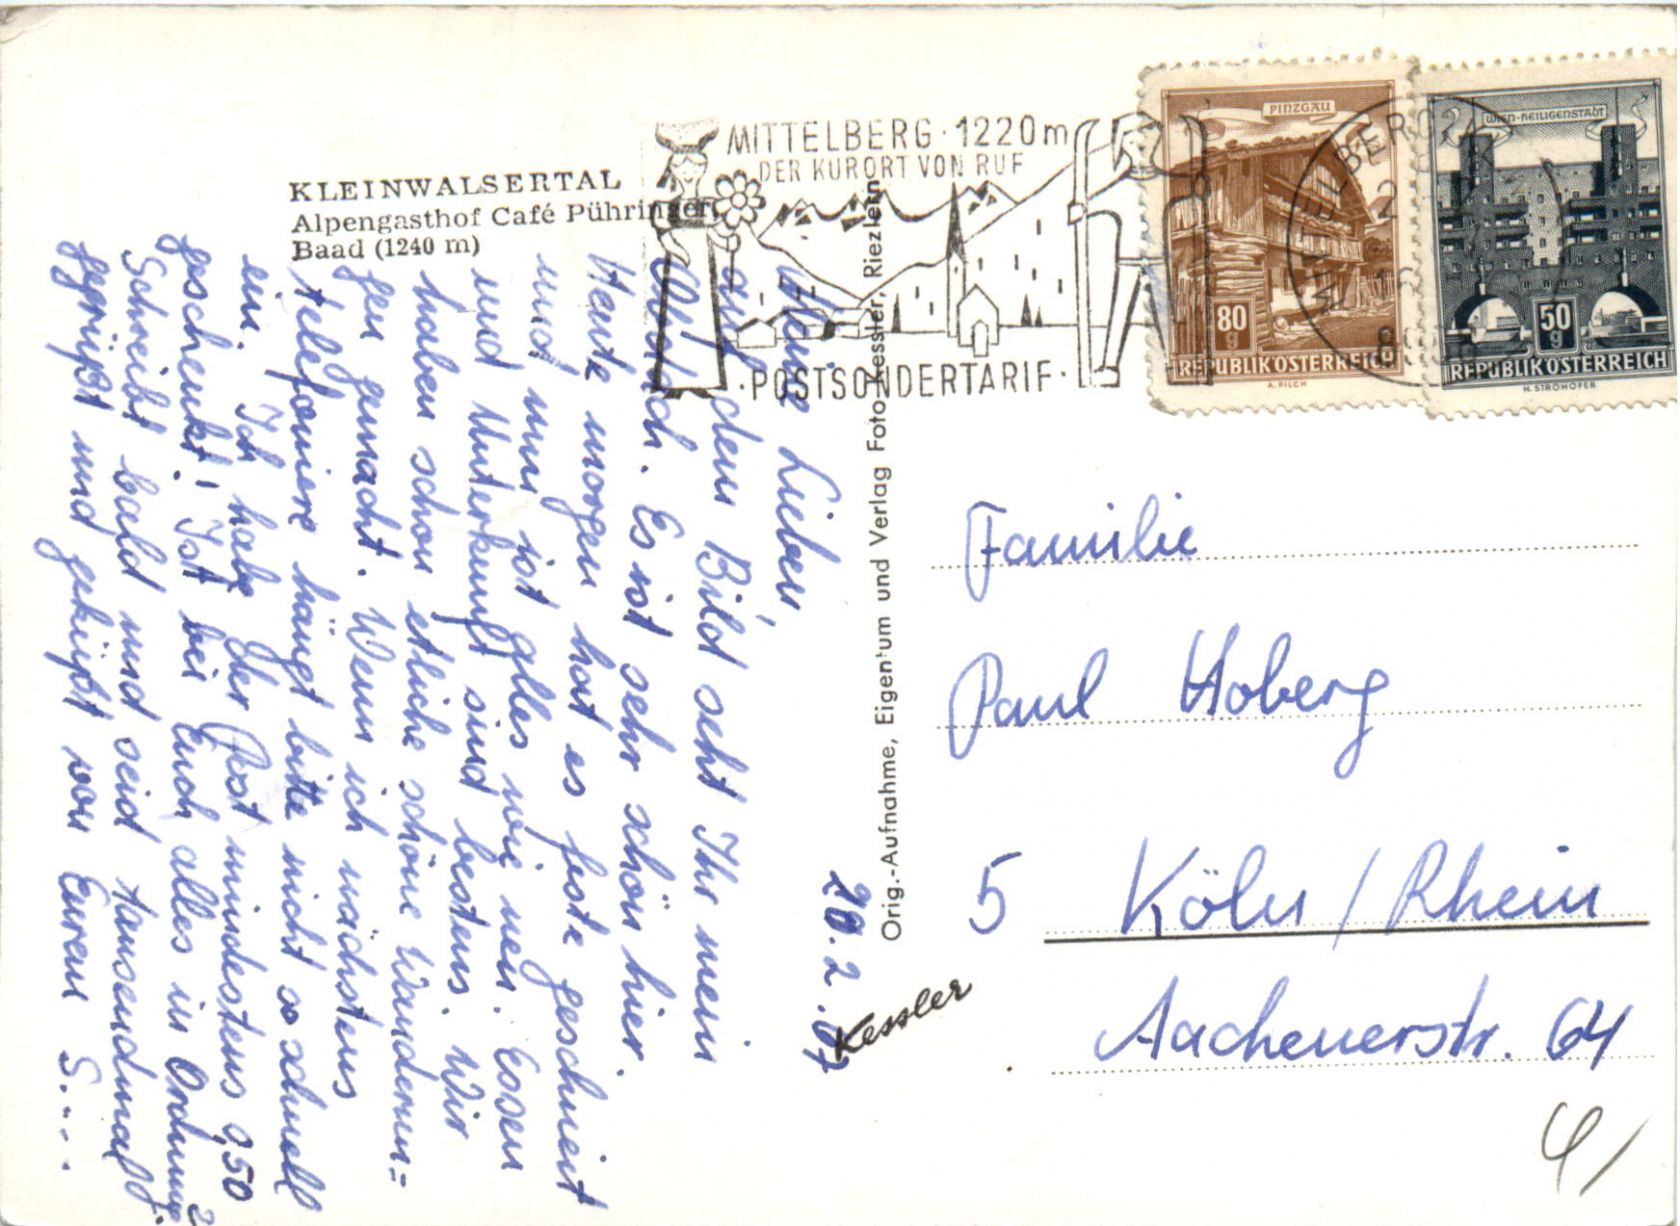 KLEINWALSERTAL
Alpengasthof Café Pühringer
Baad (1240 m)
MITTELBERG · 1220m
DER KURORT VON RUF
· POSTSONDERTARIF ·
PINZGAU
80 g
REPUBLIK ÖSTERREICH
A. PILCH
WIEN-HEILIGENSTADT
50 g
REPUBLIK ÖSTERREICH
H. STROHOFER
MITTELBERG
20.2.67
Meine Lieben,
auf dem Bild seht Ihr mein
Es ist sehr schön hier.
Heute morgen hat es feste geschneit
und nun ist alles wie neu. Essen
und Unterkunft sind bestens. Wir
haben schon etliche schöne Wanderun=
gen gemacht. Wenn ich nächstens
telefoniere hängt bitte nicht so schnell
ein. Ich habe der Post mindestens 9,50
geschenkt! Ist bei Euch alles in Ordnung?
Schreibt bald und seid tausendmal
gegrüßt und geküßt von Eurem S....
Orig.-Aufnahme, Eigentum und Verlag Foto-Kessler, Riezlern
Kessler
Familie
Paul Hoberg
5 Köln / Rhein
Aachenerstr. 64